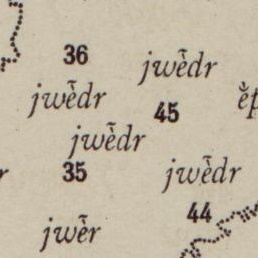 36
jwẽ̀dr
jwẽ̀dr
45
jwẽ̀dr
35
jwẽ̀dr
44
jwẽ̀r